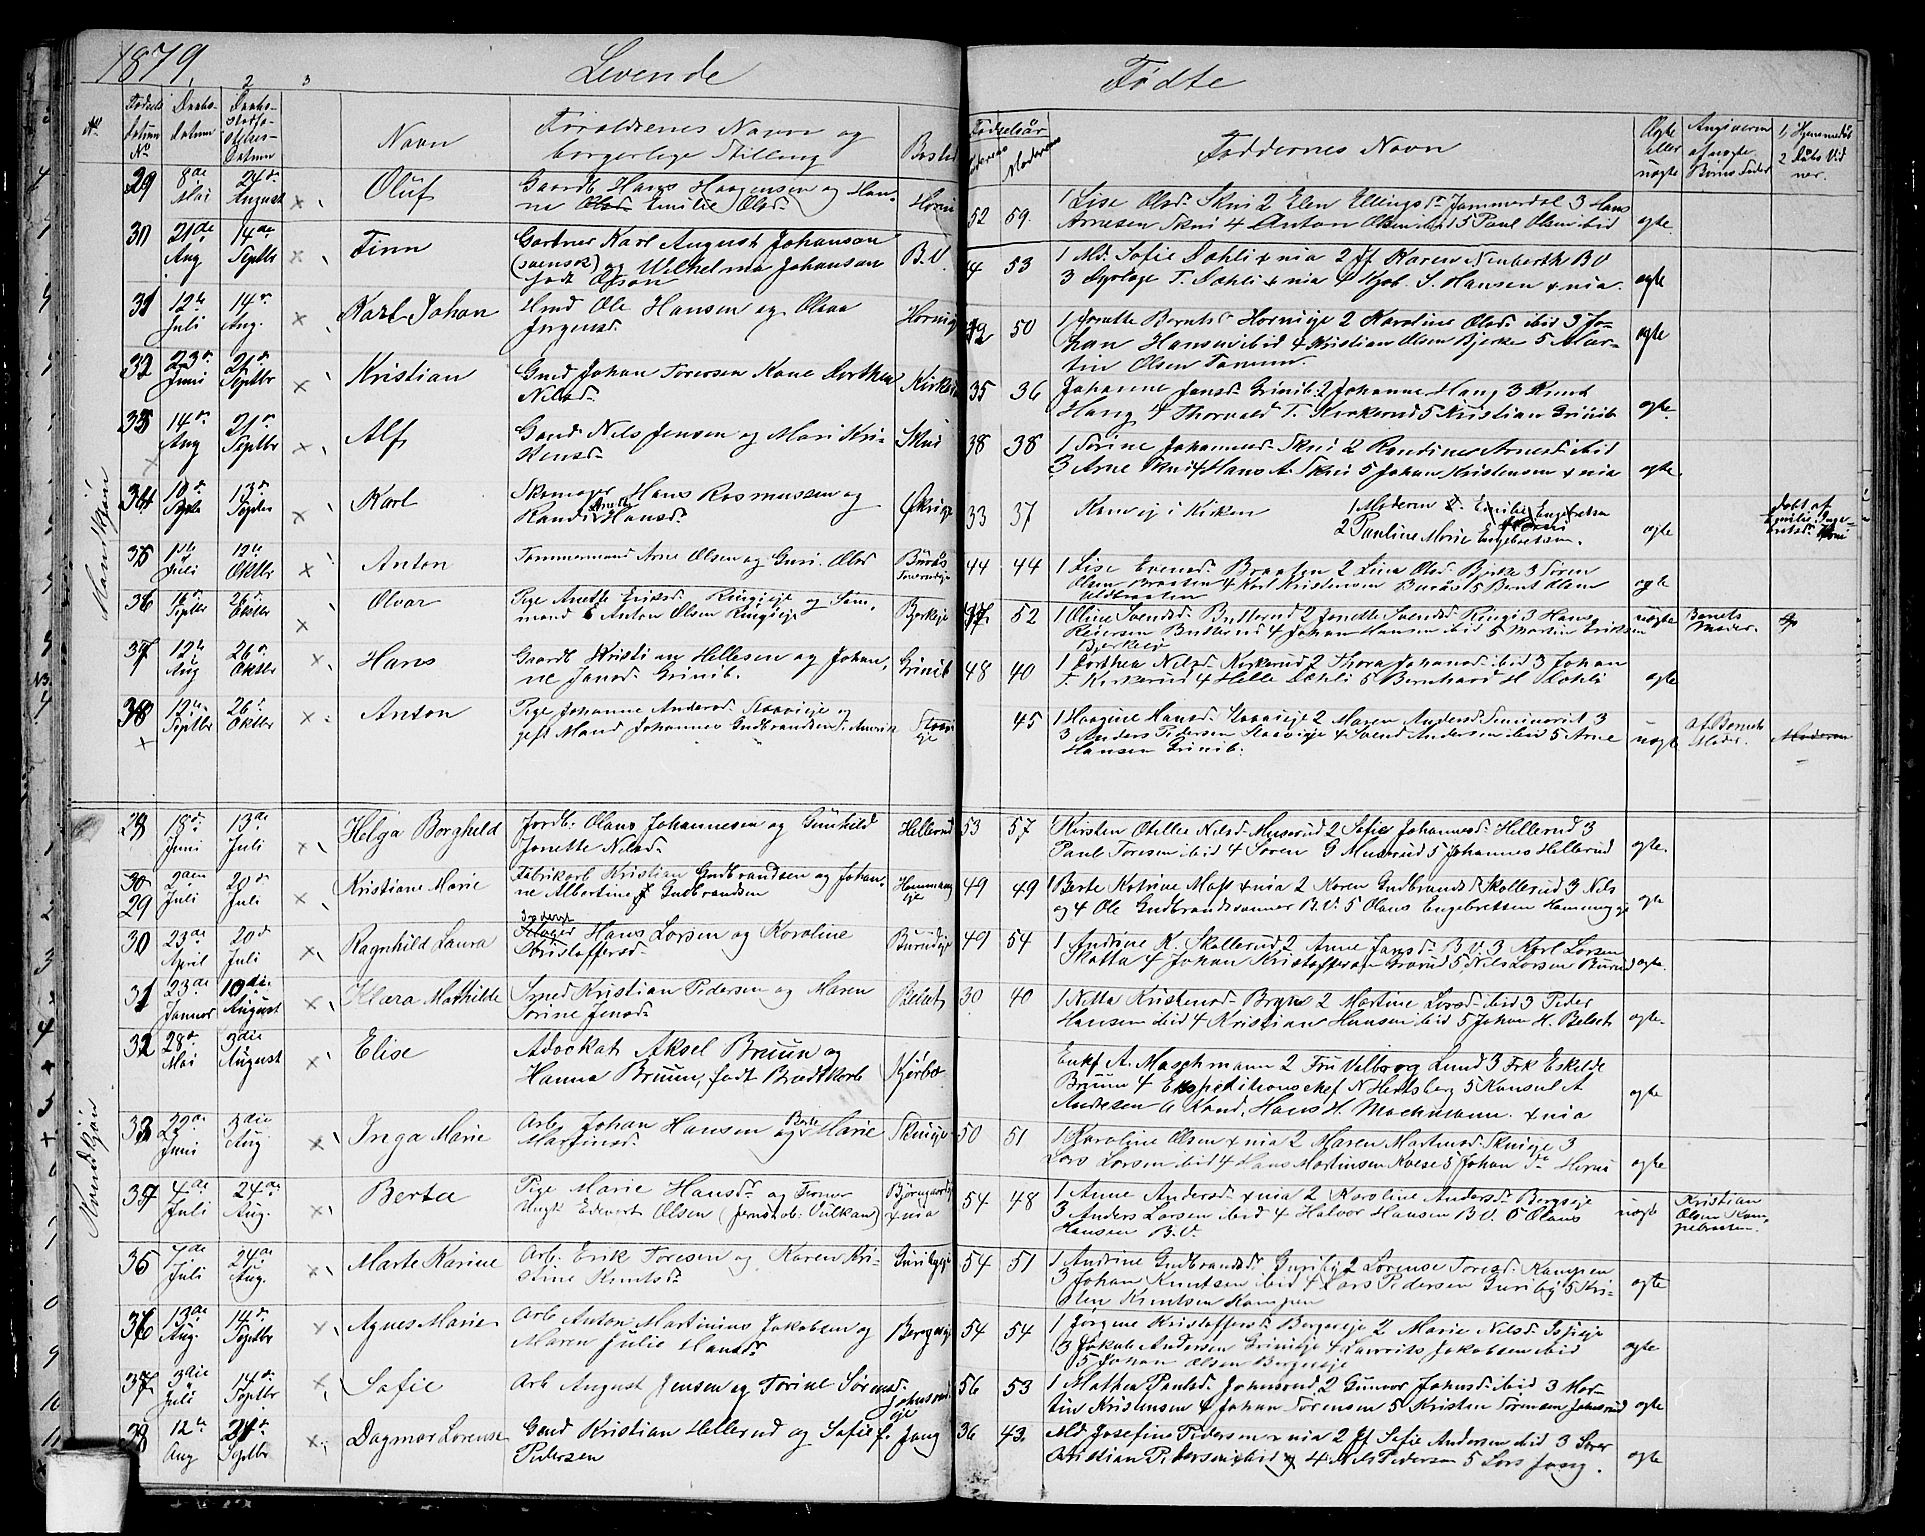 1879
Levende
Fødte
1 2 3
No
Fødsels Datum No
Daabs-Datum
Daabs-stadfæstelses-Datum
Navn
Forældrenes Navn og
borgerlige Stilling
Bosted
Fødselsår
Faderens
Moderens
Faddernes Navn
Ægte eller uægte
Angiveren af uægte Børns Fader
1 Hjemmedøbt
2 Daabs Vidner.
Mandkjøn
29 8de Mai 24de August Oluf
Gaardb Hans Haagensen og Hanne Emilie Olsd.
52 59.
1 Lise Olsd. Skui 2 Elen Ellingsd. Jammerdal 3 Hans
Arnesen Skui 4 Anton Olsen ibid 5 Paul Olsen ibid
ægte
30 21de Aug 14de Septbr Finn
Gartner Karl August Johanson
(svensk) og Wilhelma Johanson
født Olson
B.V.
4 53
1 Md. Sofie Dæhli xnia 2 Jf Karen Neuberth BV
3 Dyrlæge T. Dæhli xnia 4 Kjøb. S. Hansen xnia.
ægte
31 12te Juli 14de Aug. Karl Johan
Hmd Ole Hansen og Olava
Jørgensd.
Hornije
50
1 Jonette Berntsd Horniije 2 Karoline Olsd ibid 3 Jo-
han Hansen ibid 4 Kristian Olsen Bjerke 5 Mar-
tin Olsen Tanum.
ægte
32 23de Juni 21de Septbr Kristian
Gmd Johan Toresen Kone Dorthea
Nilsd.
35 36
Johanne Jensd. Grinib. 2 Johanne Haug 3 Knut
Haug 4 Thorvald T. Kirkerud 5 Kristian Grinib
ægte
33 14de Aug 21de Septbr Alf
Gmd. Nils Jensen og Mari Kri-
stensd.
Skui
38 38
1 Torine Johannesd. Skui 2 Randine Arnesd. ibid
3 Arne Skui 4 Hans A. Skui 5 Johan Kristensen xnia
ægte
34 10de Septbr Karl
Skomager Hans Rasmussen og
Randi Hansd.
33 37
Kom ej i Kirken
1 Moderen 2. Emilie Engebretsen
2 Pauline Marie Engebretsen.
ægte
Døbt af
Emilie Enge-
bretsd.
35 1ste Juli 12te Oktbr Anton
Tømmermand Arne Olsen og Guri Olsd
Burås
44 44
1 Lise Evensd. Braaten 2 Lina Olsd. Bjerke 3 Søren
Olsen Braaten 4 Karl Kristensen Burås 5 Bent Olsen
ægte
36 16de Septbr 26de Oktbr Olvar
Pige Anette Eriksd. Ringieje og Søm-
mand E Anton Olsen Ringieje
Bjerkeje
52
1 Oline Svendsd. Butterud 2 Jonette Svendsd. Ringi 3 Hans
Reiersen Butterud 4 Johan Hansen ibid 5 Martin Eriksen
Bjerkeje
uægte
Barnets
Moder.
37 12te Aug 26de Oktbr Hans
Gaardb Kristian Hellesen og Johan-
ne Jansd. Grinib.
Grinib
48 40
1 Dorthea Nilsd. Kirkerud 2 Thora Johansd. ibid 3 Johan
T. Kirkerud 4 Helle Dæhli 5 Bernhard H. Dæhli
ægte
38 12te Septbr 26de Oktbr Anton
Pige Johanne Andersd. Staavieje og
gift Mand Johannes Gudbrandsen i Amerika
Staavieje
45
1 Haagine Hansd. Staavieje 2 Maren Andersd. Seminariet 3
3 Anders Pedersen Staavieje 4 Svend Andersen ibid 5 Arne
Hansen Grinib.
uægte
Af Barnets
Moder.
Moderen
Kvindkjøn
29 18de Juni 13de Juli Helga Borghild
Jordb. Olaus Johannesen og Gunhild
Jonette Nilsd.
Hellerud
53 57
Kirsten Otellie Nilsd. Muserud 2 Sofie Johannesd. Hellerud 3
Paul Toresen ibid 4 Søren G Muserud 5 Johannes Hellerud
ægte.
30 29 2den Juli 20de Juli Kristiane Marie
Fabrikarb Kristian Gudbrandsen og Johan-
ne Albertine Gudbrandsen
49 49
1 Berte Katrine Mast xnia 2 Karen Gudbrandsd. Skallerud 3 Nils
og 4 Ole Gudbrandsønner B.V. 5 Olaus Engebretsen
ægte
30 23de April 20de Juli Ragnhild Laura
Hans Larsen og Karoline
Kristoffersd.
Burudeje
49 54
1 Andrine K. Skallerud 2 Anne Jansd. B.V. 3 Karl Larsen
Skotta 4 Johan Kristoffersen Grorud 5 Nils Larsen Burud
ægte.
31 23de Januar 10de August Klara Mathilde
Smed Kristian Pedersen og Maren
Torine Jensd.
Belset
30 40
1 Netta Kristensd. Bryn 2 Martine Larsd. ibid 3 Peder
Hansen ibid 4 Kristian Hansen ibid 5 Johan H. Belset
ægte.
32 28de Mai 3die August Elise
Advokat Aksel Bruun og
Hanna Bruun, født Brødtkorb
Kjørbo
Enkf A. Maschmann 2 Fru Vilborg Lund 3 Frk Eskilde
Bruun 4 Ekspeditionschef N Hertsberg 5 Konsul A
Andresen 6 Kand. Hans H. Machmann. xnia
ægte
33 29de Juni 3die Aug. Inga Marie
Arb. Johan Hansen og Berte Marie
Martinsd.
Skuieje
50 51
1 Karoline Olsen xnia 2 Maren Martinsd. Skuieje 3
Lars Larsen ibid 4 Hans Martinsen Kolse 5 Johan Horni
ægte
34 4de Juli 24de Aug. Berta
Pige Marie Hansd. og Former
Ungk Edevart Olsen (Jernstøb. Vulkan)
xnia
54 48
1 Anne Andersd. xnia 2 Karoline Andersd. Bergseje
3 Anders Larsen ibid 4 Halvor Hansen B.V. 5 Olaus
Hansen B.V.
uægte
Kristian
Olsen Kam-
pebraaten.
35 7de Juli 24de Aug. Marte Karine
Arb. Erik Toresen og Karen Kri-
stine Knutsd.
Guribyeje
54 51
1 Andrine Gudbrandsd. Guriby 2 Lorense Toresd. Kampen
3 Johan Knutsen ibid 4 Lars Pedersen Guriby 5 Kri-
sten Knutsen Kampen
ægte
36 13de Aug. 14de Septbr Agnes Marie
Arb Anton Martinius Jakobsen og
Maren Julie Hansd.
Bergseje
54 54
1 Jørgine Kristoffersd. Bergseje 2 Marie Nilsd. Isieje
3 Jakob Andersen Grinieje 4 Laurits Jakobsen ibid
5 Johan Olsen Bergseje
ægte
37 3die Juli 14de Septbr Sofie
Arb August Jensen og Torine Sørensd.
Johnsrudeje
56 53
1 Mathea Paulsd. Johnsrud 2 Gunvor Johnsd. ibid 3 Mar-
tin Kristensen 4 Johan Sørensen 5 Kristen Sørensen Johnsrud
ægte
38 12te Aug 21de Septbr Dagmar Lorense
Gmd Kristian Hellerud og Sofie f.
Pedersen
Jong
36 43.
Md Josefine Pedersen xnia 2 Jf Sofie Andersen ibid 3
Kristian Pedersen ibid 4 Nils Pedersen 5 Lars Jong.
ægte